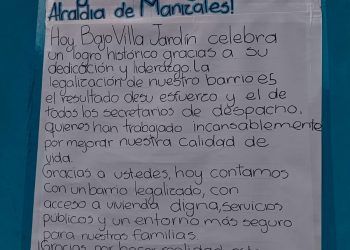 Alcaldía de Manizales!
Hoy Bajo Villa Jardín celebra
un logro histórico gracias a su
dedicación y liderazgo. La
legalización de nuestro barrio es
el resultado de su esfuerzo y el de
todos los secretarios de despacho,
quienes han trabajado incansablemente
por mejorar nuestra calidad de
vida.
Gracias a ustedes, hoy contamos
con un barrio legalizado, con
acceso a vivienda digna, servicios
publicos y un entorno más seguro
para nuestras familias
Gracias por hacer realidad este